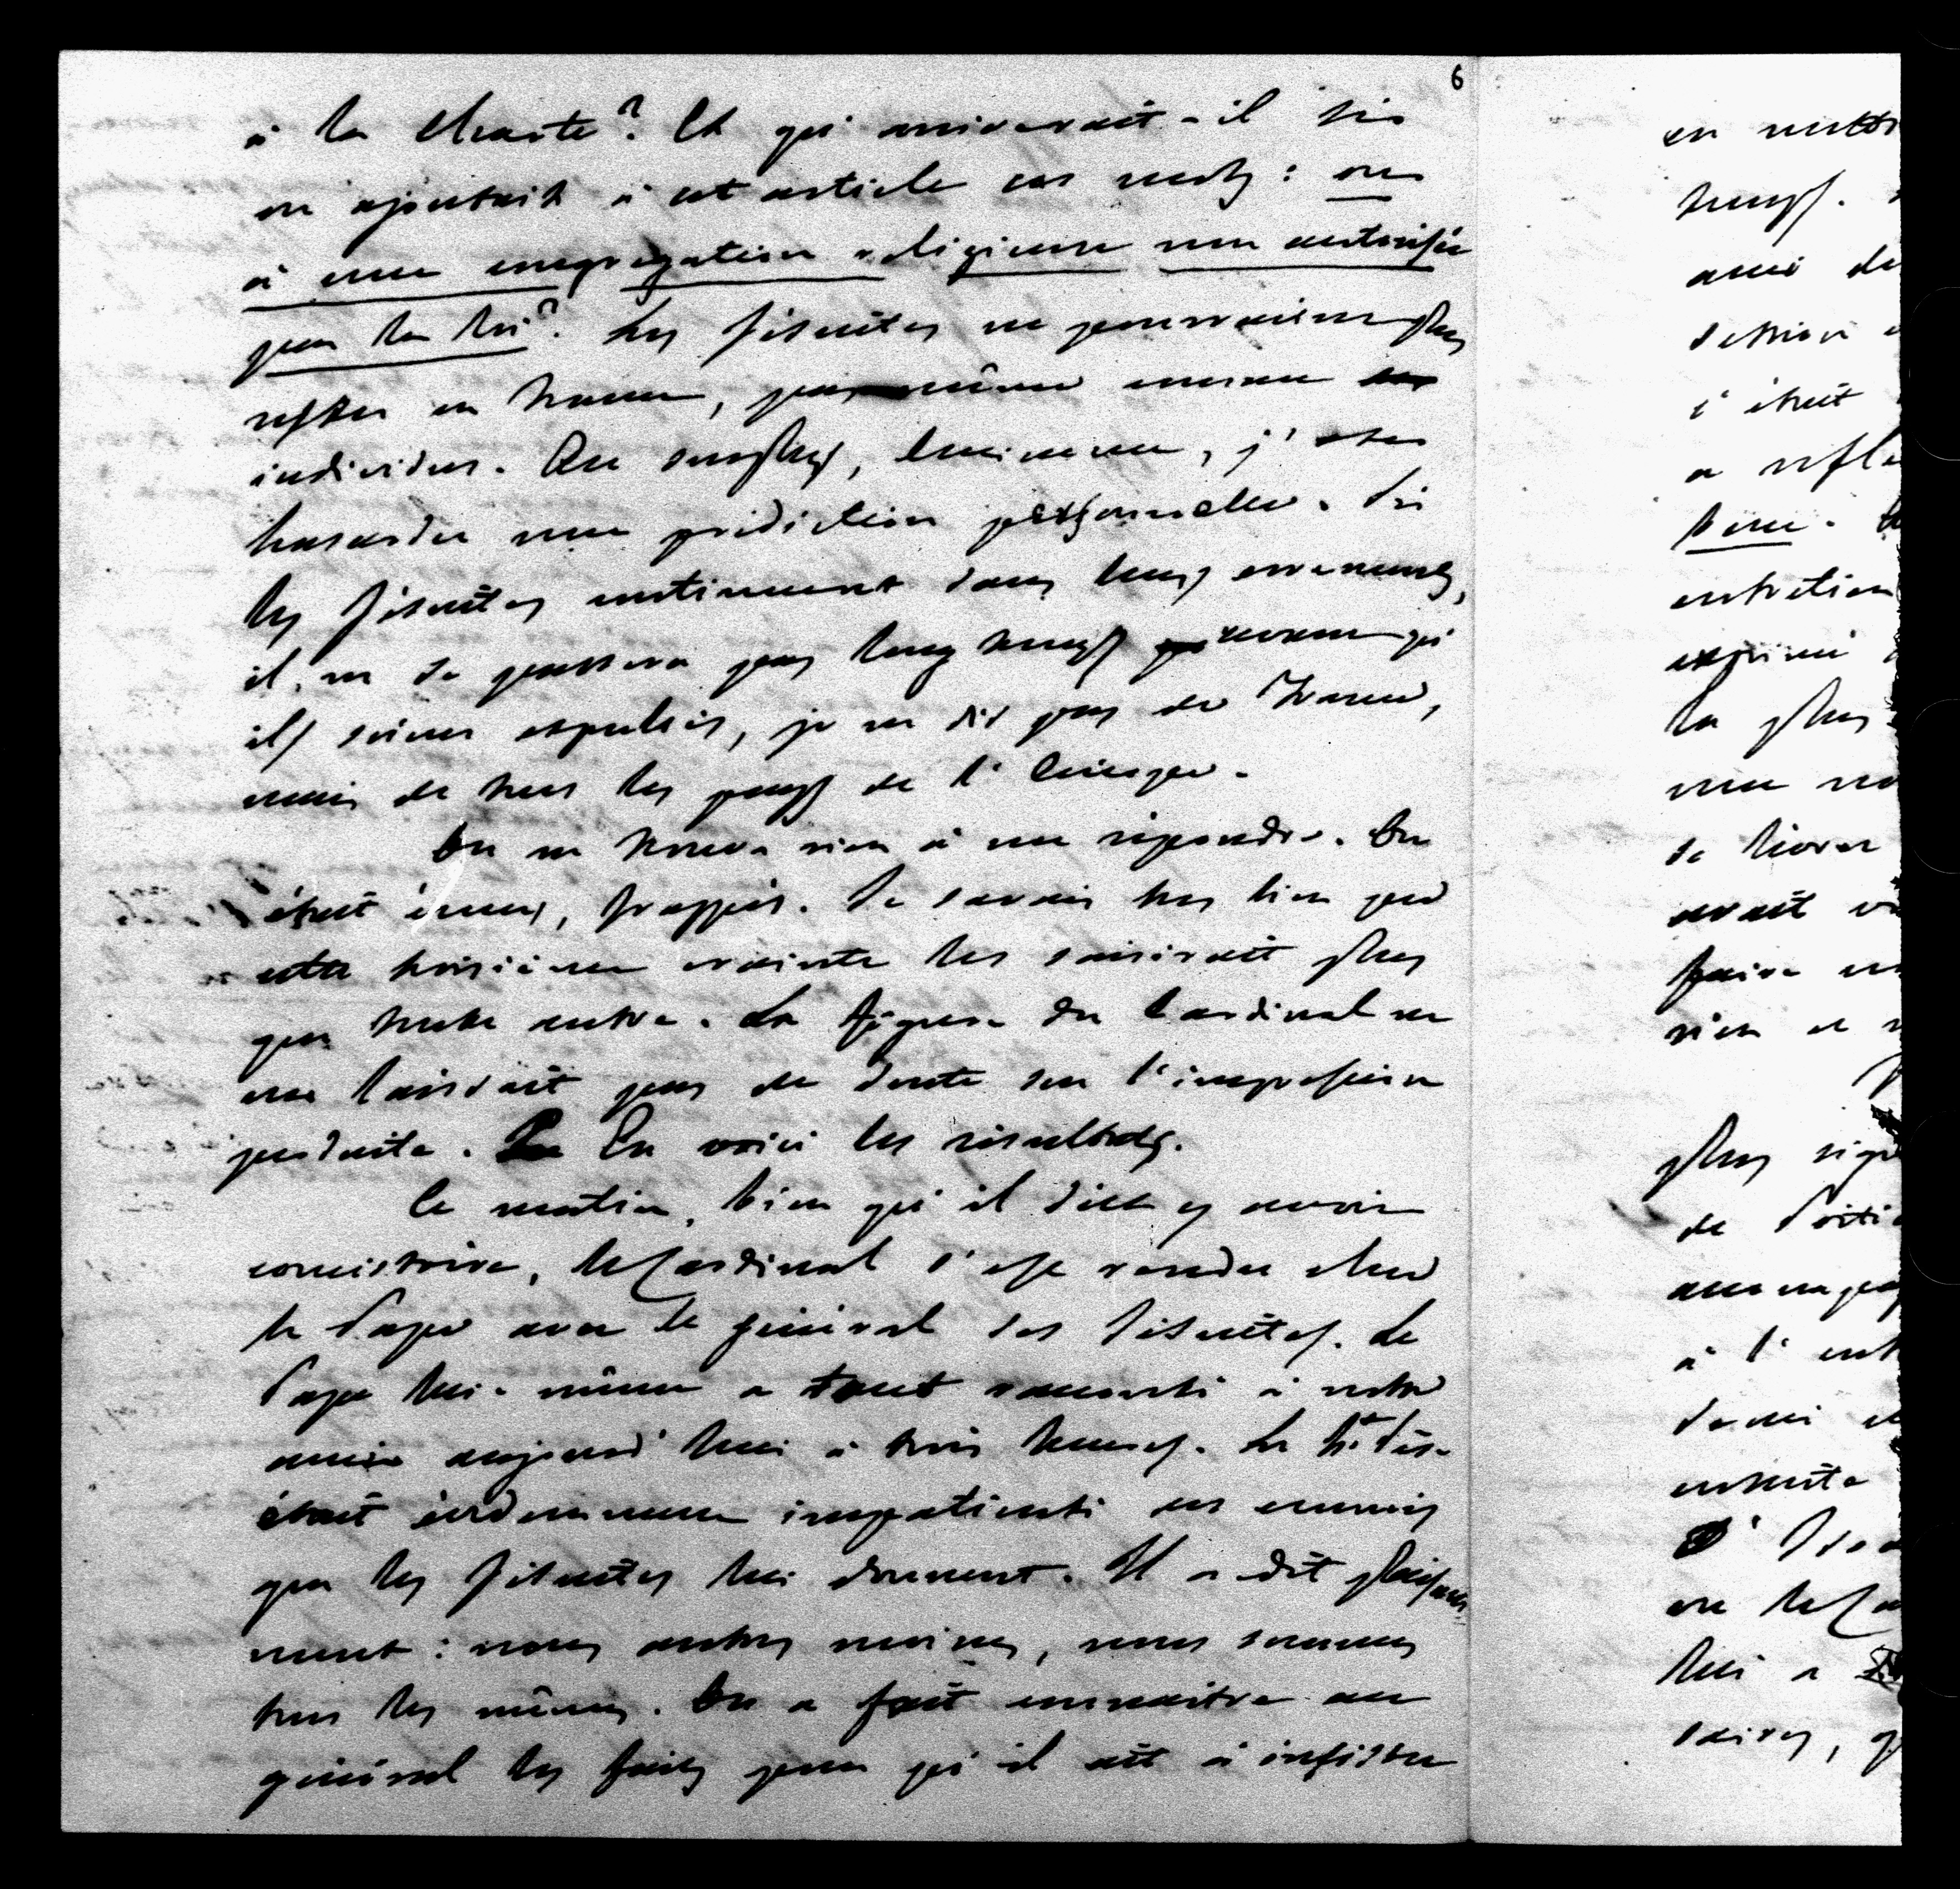 6
à la Charte? Et qu'arriverait-il si
on ajoutait à cet article ces mots: ou
à une congrégation religieuse non autorisée
par la loi? Les Jésuites ne pourraient plus
rester en France, pas même comme
individus. Au surplus, Eminence, j'ose
hasarder une prédiction personnelle. Si
les Jésuites continuent dans leurs errements,
il ne se passera pas long temps avant qu'
ils soient expulsés, je ne dis pas de France,
mais de tous les pays de l'Europe.
On ne trouva rien à me répondre. On
était émus, frappés. Je savais très bien que
cette troisième crainte les saisirait plus
que toute autre. La figure du Cardinal ne
me laissait pas de doute sur l'impression
produite. En voici les résultats.
Ce matin, bien qu'il dût y avoir
consistoire, le Cardinal s'est rendu chez
le Pape avec le général des Jésuites. Le
Pape lui-même a tout raconté à notre
ami aujourd'hui à trois heures. Le St. Père
était évidemment impatienté des ennuis
que les Jésuites lui donnent. Il a dit plaisam
ment: nous autres moines, nous sommes
tous les mêmes. On a fait connaitre au
général les faits pour qu'il ait à insister
en
temps.
ami de
session
c'était
a
entretien
exprimé
la plus
une
se livrer
avait
faire
rien
plus
de
à l'
demi
ensuite
on le Ca
lui a